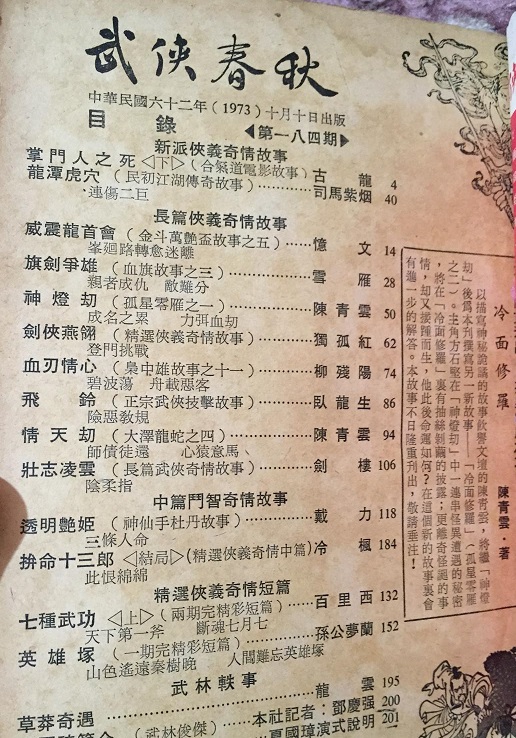 武俠春秋
中華民國六十二年（1973）十月十日出版
目錄 ◀第一八四期▶
新派俠義奇情故事
掌門人之死◁下▷（合氣道電影故事）古龍 4
龍潭虎穴（民初江湖傳奇故事）………司馬紫烟 40
連傷二巨
長篇俠義奇情故事
威震龍首會（金斗萬艷盃故事之五）……憶文 14
峯迴路轉愈迷離
旗劍爭雄（血旗故事之三）……………雪雁 28
親者成仇 敵難分
神燈劫（孤星零雁之一）………………陳青雲 50
成名之累 力弭血劫
劍俠燕翎（精選俠義奇情故事）………獨孤紅 62
登門挑戰
血刃情心（梟中雄故事之十一）………柳殘陽 74
碧波蕩 舟載惡客
飛鈴（正宗武俠技擊故事）……………臥龍生 86
險惡教規
情天劫（大澤龍蛇之四）………………陳青雲 94
師債徒還 心猿意馬
壯志凌雲（長篇武俠奇情故事）………劍樓 106
陰柔指
中篇鬥智奇情故事
透明艷姬（神仙手杜丹故事）…………戴力 118
三條人命
拚命十三郎◁結局▷（精選俠義奇情中篇）冷楓 184
此恨綿綿
精選俠義奇情短篇
七種武功◁上▷（兩期完精彩短篇）……百里西 132
天下第一斧 斷魂七月七
英雄塚（一期完精彩短篇）……………孫公夢蘭 152
山色遙遠秦樹晚 人間難忘英雄塚
武林軼事
草莽奇遇………………………………龍雲 195
（武林俊傑）……本社記者：鄧慶强 200
夏國璋演式說明 201
冷面修羅 陳青雲·著
以描寫神秘詭譎的故事飲譽文壇的陳青雲，將繼「神燈
劫」後爲本刊撰寫另一新故事——「冷面修羅」（孤星零雁
之二）。主角方石堅在「神燈劫」中一連串怪異遭遇的秘密
，將在「冷面修羅」裏有抽絲剝繭的披露；更離奇怪誕的事
情，却又接踵而生，他此後命運如何？在這個新的故事裏會
有進一步的解答。本故事不日隆重刊出，敬請垂注！